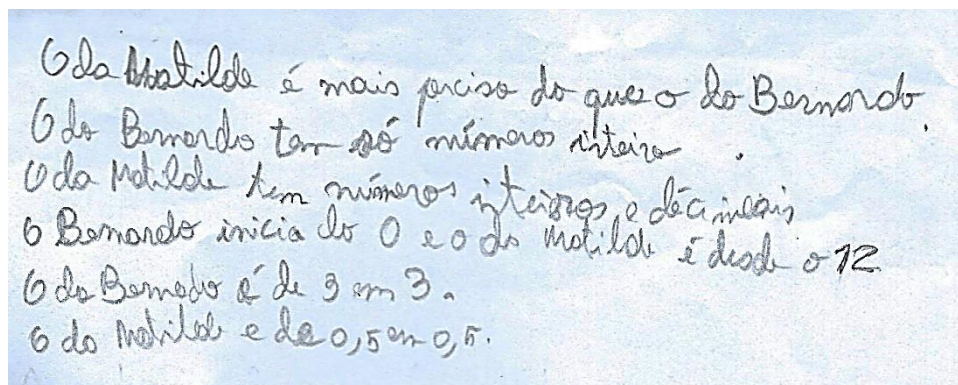 O da Matilde é mais perciso do que o do Bernardo.
O do Bernardo tem só números inteiro.
O da Matilde tem números inteiros e décimeais
O Bernardo inicia do 0 e o da Matilde é desde o 12
O do Bernado é de 3 em 3.
O da Matilde e de 0,5 em 0,5.